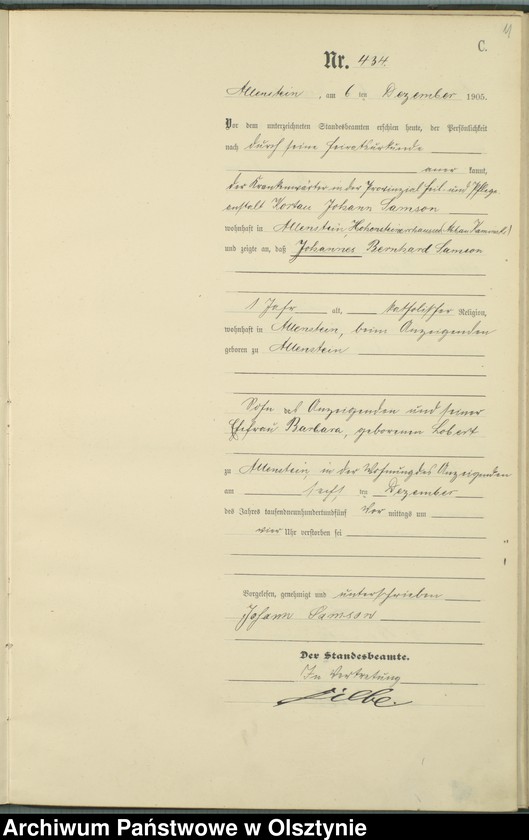 11
C.
Nr. 434.
Allenstein, am 6 ten Dezember 1905.
Vor dem unterzeichneten Standesbeamten erschien heute, der Persönlichkeit
nach durch seine Heiratsurkunde
aner kannt,
der Krankenwärter in der Provinzial Heil- und Pflege
anstalt Kortau Johann Samson
wohnhaft in Allenstein,
und zeigte an, daß Johannes Bernhard Samson
1 Jahr alt, katholischer Religion,
wohnhaft in Allenstein, beim Anzeigenden
geboren zu Allenstein
Sohn des Anzeigenden und seiner
Ehefrau Barbara, geborenen
zu Allenstein, in der Wohnung des Anzeigenden
am sechs ten Dezember
des Jahres tausendneunhundertundfünf Vor mittags um
vier Uhr verstorben sei
Vorgelesen, genehmigt und unterschrieben
Johann Samson
Der Standesbeamte.
In Vertretung
Archiwum Państwowe w Olsztynie